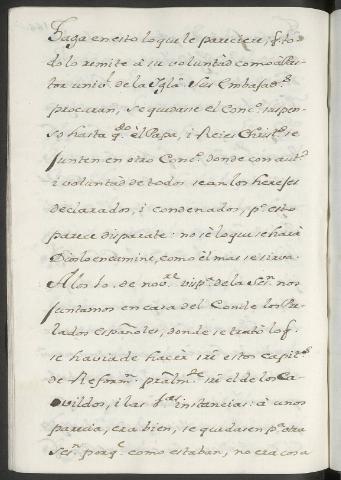 haga en esto lo que le pareciere, q̃ to
do lo remite à su voluntad como à Pas
tor univ.l de la Igl.a Sus Embaxad.s
procuran, se quedase el Conc.o suspen
so hasta q.e el Papa, i Reies Christ.s se
junten en otro Conc.o donde con aut.d
i voluntad de todos sean los hereges
declarados, i condenados, p.o esto
parece disparate: no sè lo que se harà
Dios lo encamine, como èl mas se sirva.
A los 10. de nov.re visp.a de la Ses.n nos
juntamos en casa del Conde los Pre
lados españoles, donde se tratò lo q.
se havia de hacer sre estos capit.s
de Reform.n pralm.te sre el de los Ca
vildos, i las p.as instancias: à unos
parecia, era bien, se quedasen p.a otra
Ses.n porq.e como estaban, no era cosa